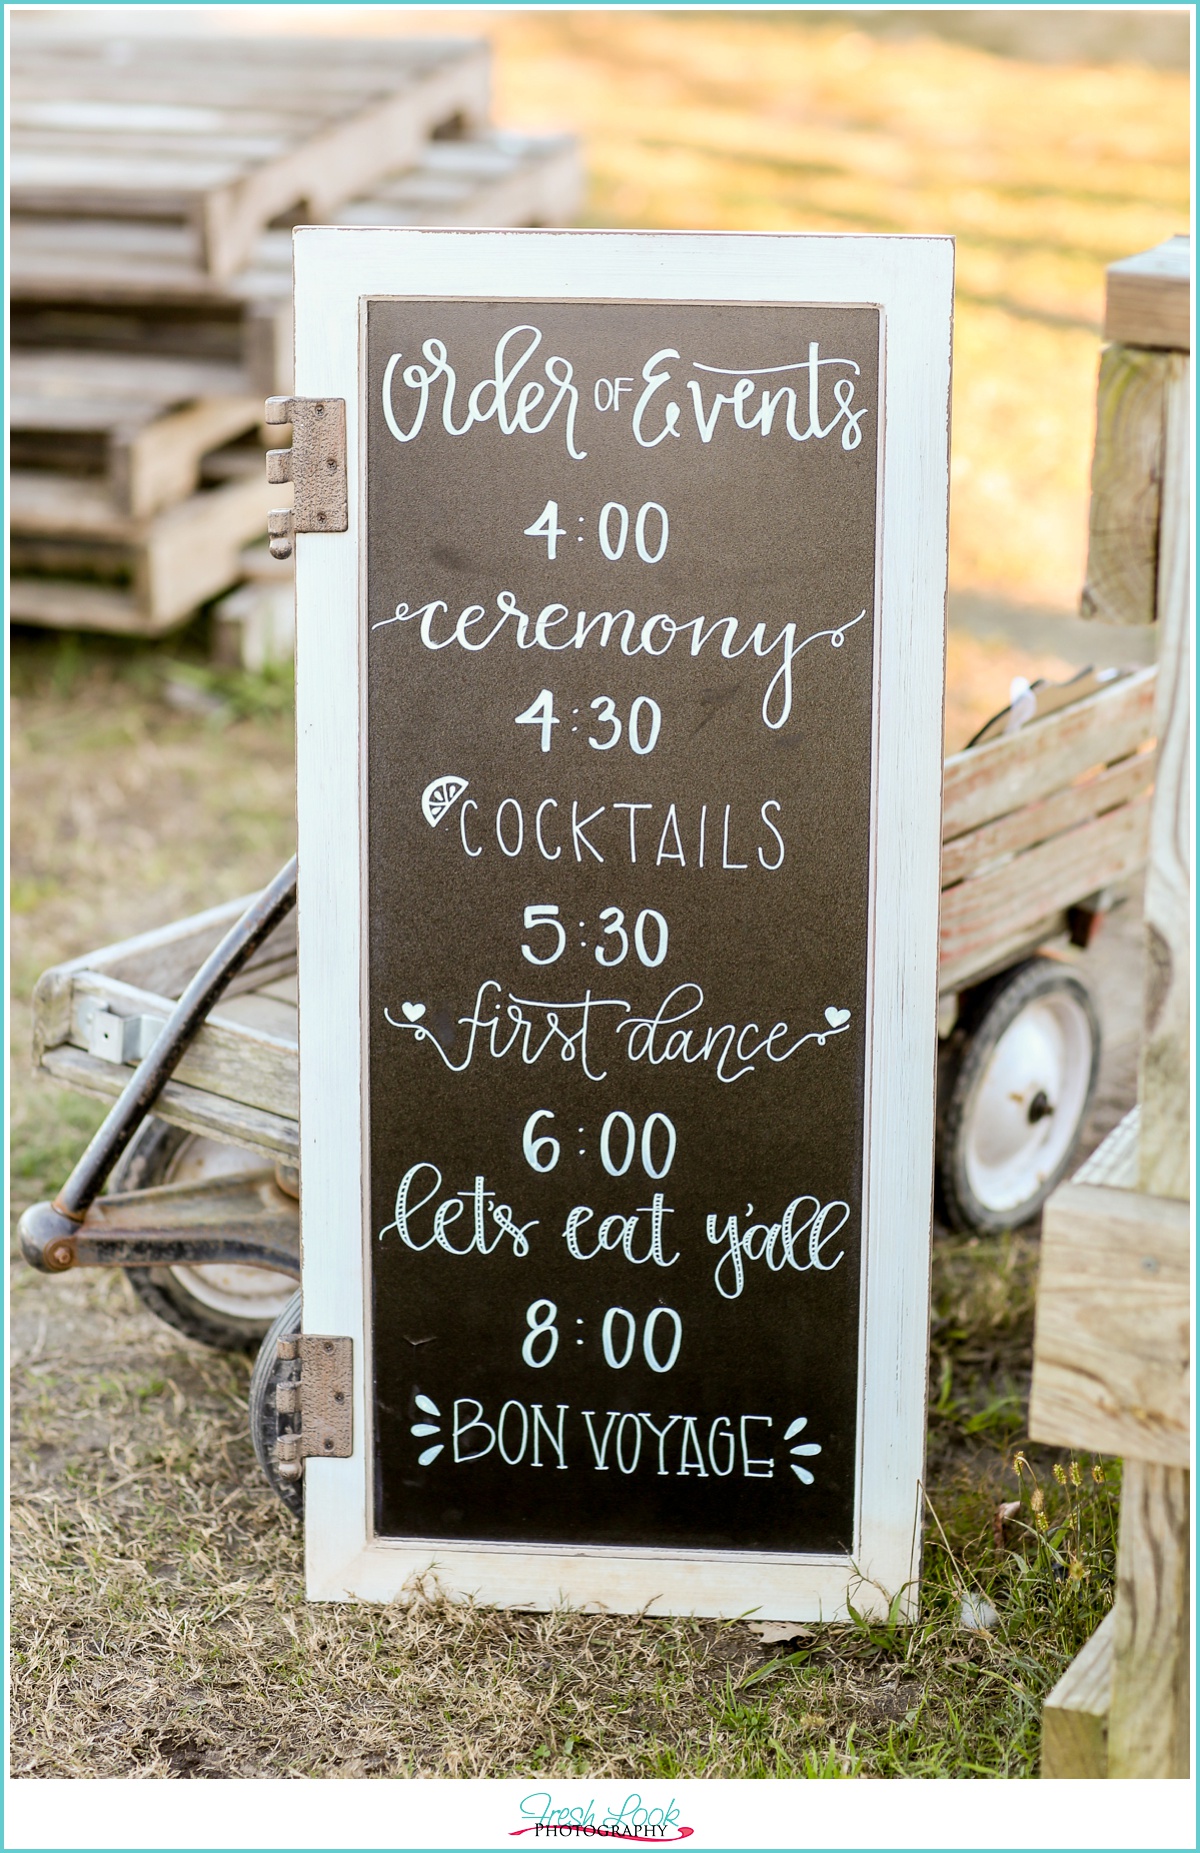 Order OF Events
4:00
ceremony
4:30
COCKTAILS
5:30
first dance
6:00
let's eat y'all
8:00
BON VOYAGE
Fresh Look
PHOTOGRAPHY